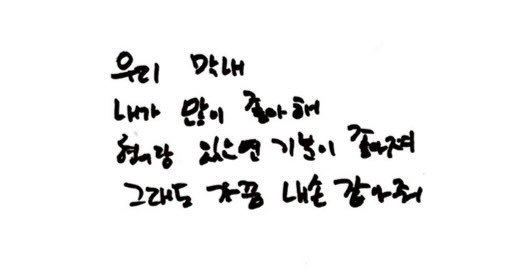 우리 막내
내가 많이 좋아해
형이랑 있으면 기분이 좋아져
그래도 가끔 내손 잡아줘